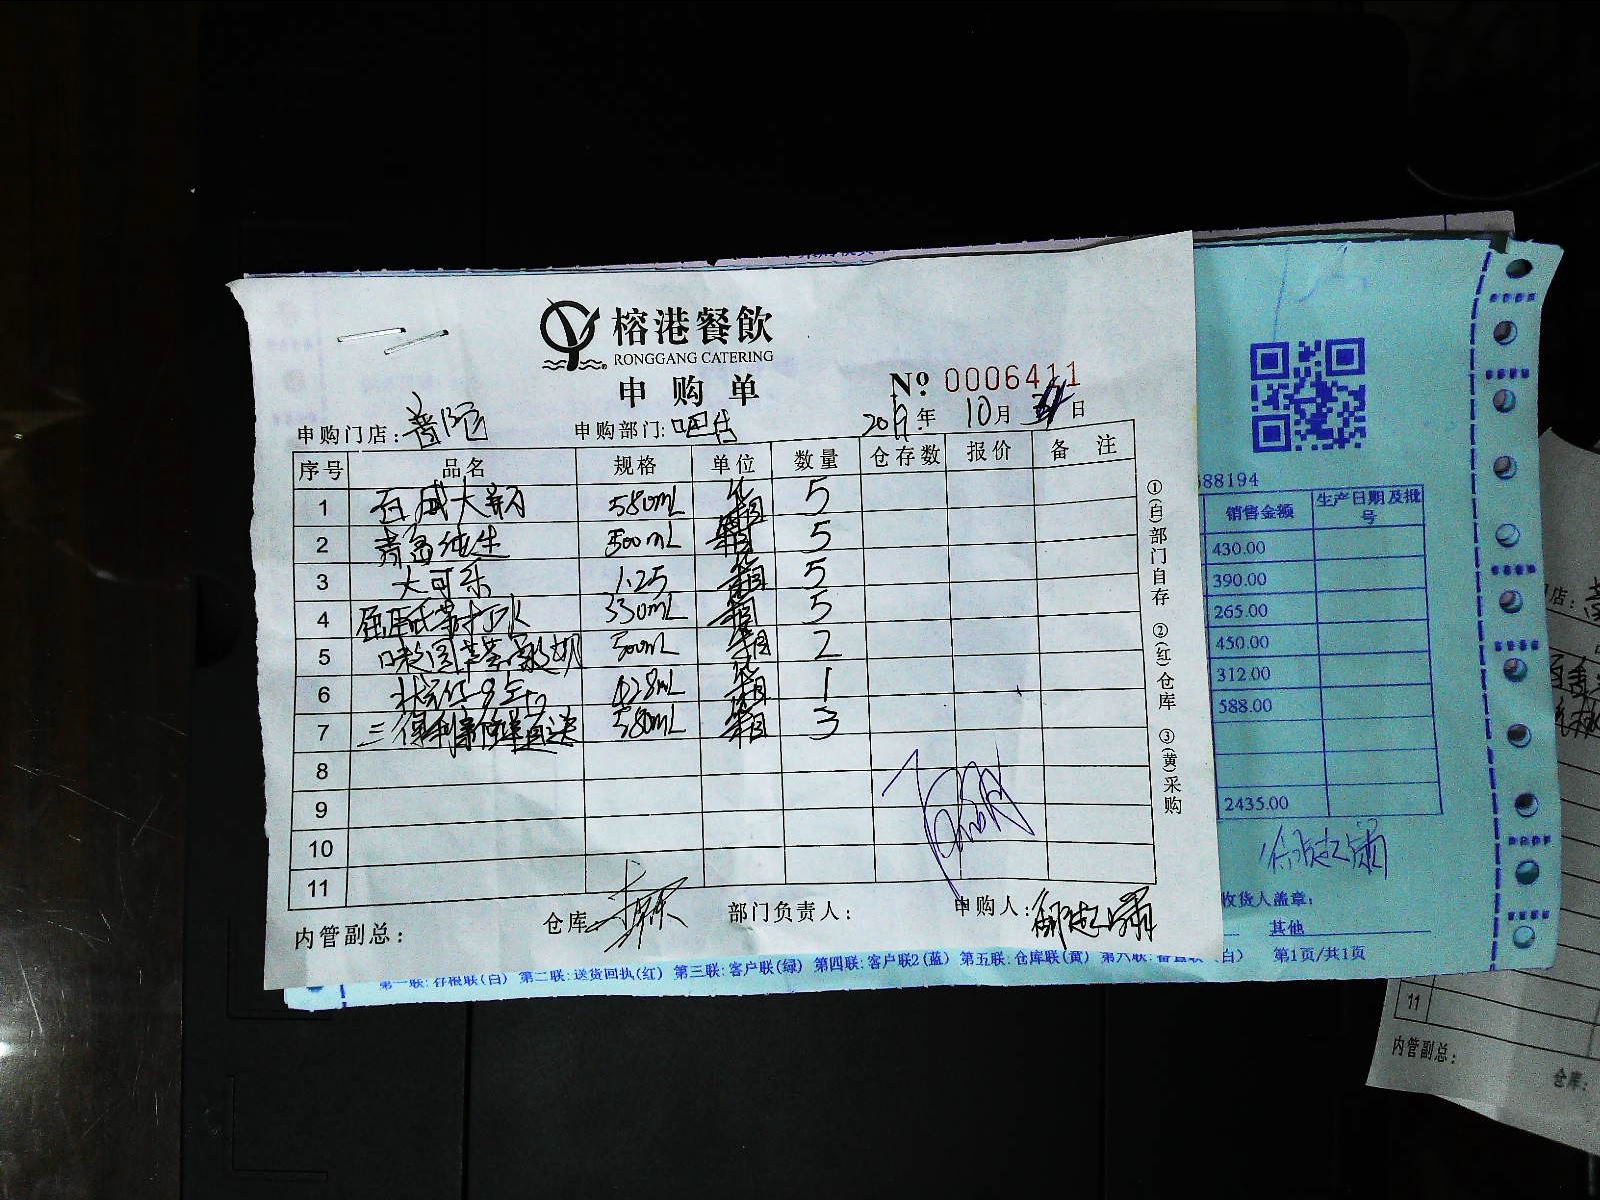 榕港餐飲
RONGGANG CATERING
申购单
№ 0006411
申购门店:普陀 申购部门:吧台 2019年 10月 日
序号 品名 规格 单位 数量 仓存数 报价 备注
1 百威大瓶 580mL 箱 5
2 青岛纯生 500mL 箱 5
3 大可乐 1.25 箱 5
4 屈臣氏苏打水 330mL 箱 5
5 500mL 箱 2
6 状元红 428mL 箱 1
7 三得利 580mL 箱 3
8
9
10
11
内管副总: 仓库: 部门负责人: 申购人:
①(白)部门自存 ②(红)仓库 ③(黄)采购
88194
销售金额 生产日期及批号
430.00
390.00
265.00
450.00
312.00
588.00
2435.00
收货人盖章:
其他
第一联:存根联(白) 第二联:送货回执(红) 第三联:客户联(绿) 第四联:客户联2(蓝) 第五联:仓库联(黄) 第六联: 白) 第1页/共1页
店:
11
内管副总:
仓库: